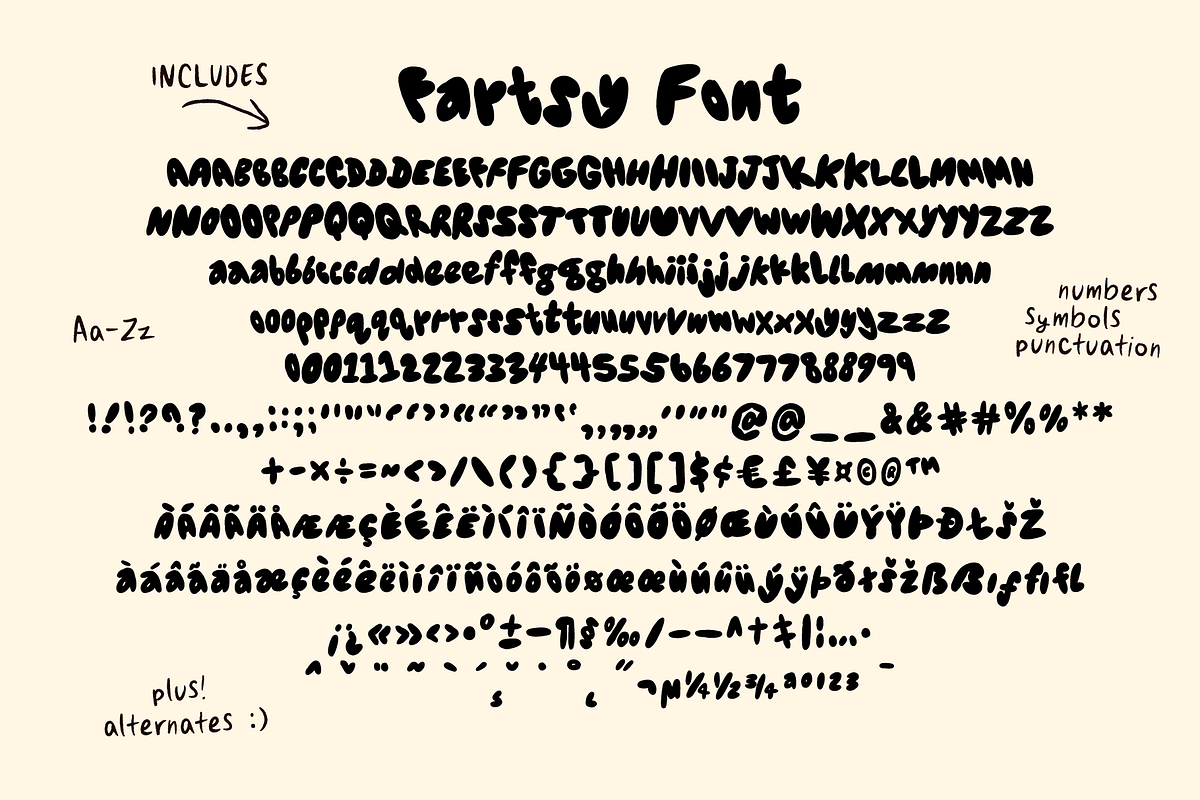 INCLUDES
Fartsy Font
AAABBBCCCDDDEEEFFFGGGHHHIIIJJJKKKLLLMMMN
NNOOOPPPQQQRRRSSSTTTUUUVVVWWWXXXYYYZZZ
aaabbbcccdddeeefffggghhhiiijjjkkklllmmmnnn
Aa-Zz
ooopppqqqrrrssstttuuuvvvwwwxxxyyyzzz
numbers
symbols
punctuation
000111222333444555666777888999
!!!???..,,::;;""''‘‘’’““””‚‚„„''""@@__&&##%%**
+-×÷=~<>/\(){}[][]$¢€£¥¤©®™
ÀÁÂÃÄÅÆÆÇÈÉÊËÌÍÎÏÑÒÓÔÕÖØŒÙÚÛÜÝŸÞÐŁŠŽ
àáâãäåæçèéêëìíîïñòóôõöøœœùúûüýÿþðłšžßßıƒfifl
¡¿«»‹›•º±–¶§‰⁄–—^†‡|¦…·
ˆ ˇ ¨ ˜ ` ´ ˘ ˙ ˚ ˝ ¯
¸ ˛ ¬µ¼½¾ªº¹²³
plus!
alternates :)